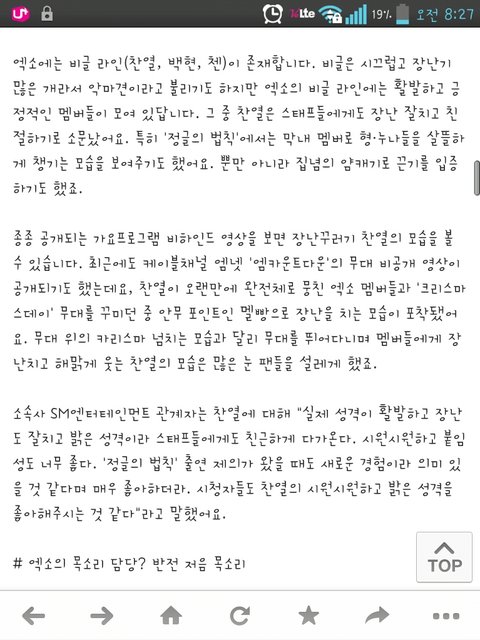 U+
LTE
19%
오전 8:27
엑소에는 비글 라인(찬열, 백현, 첸)이 존재합니다. 비글은 시끄럽고 장난기
많은 개라서 악마견이라고 불리기도 하지만 엑소의 비글 라인에는 활발하고 긍
정적인 멤버들이 모여 있답니다. 그 중 찬열은 스태프들에게도 장난 잘치고 친
절하기로 소문났어요. 특히 '정글의 법칙'에서는 막내 멤버로 형·누나들을 살뜰하
게 챙기는 모습을 보여주기도 했어요. 뿐만 아니라 집념의 얌캐기로 끈기를 입증
하기도 했죠.
종종 공개되는 가요프로그램 비하인드 영상을 보면 장난꾸러기 찬열의 모습을 볼
수 있습니다. 최근에도 케이블채널 엠넷 '엠카운트다운'의 무대 비공개 영상이
공개되기도 했는데요, 찬열이 오랜만에 완전체로 뭉친 엑소 멤버들과 '크리스마
스데이' 무대를 꾸미던 중 안무 포인트인 멜빵으로 장난을 치는 모습이 포착됐어
요. 무대 위의 카리스마 넘치는 모습과 달리 무대를 뛰어다니며 멤버들에게 장
난치고 해맑게 웃는 찬열의 모습은 많은 눈 팬들을 설레게 했죠.
소속사 SM엔터테인먼트 관계자는 찬열에 대해 "실제 성격이 활발하고 장난
도 잘치고 밝은 성격이라 스태프들에게도 친근하게 다가온다. 시원시원하고 붙임
성도 너무 좋다. '정글의 법칙' 출연 제의가 왔을 때도 새로운 경험이라 의미 있
을 것 같다며 매우 좋아하더라. 시청자들도 찬열의 시원시원하고 밝은 성격을
좋아해주시는 것 같다"라고 말했어요.
# 엑소의 목소리 담당? 반전 저음 목소리
TOP